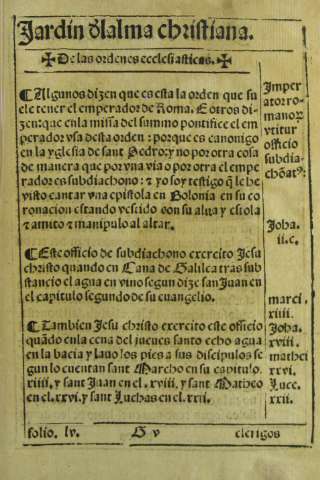 Jardin d̃lalma christiana.
✠De las ordenes ecclesiasticas.✠
¶Algunos dizen que es esta la orden que su
ele tener el emperador de Roma. E otros di-
zen: que en la missa del summo pontifice el em
perador vsa desta orden: porque es canonigo
en la yglesia de sant Pedro: y no por otra cosa
de manera que por vna via o por otra el empe
rador es subdiachono: ⁊ yo soy testigo q̃ le he
visto cantar vna epistola en Bolonia en su co
ronacion estando vestido con su alua y estola
⁊ amito ⁊ manipulo al altar.
¶Este officio de subdiachono exercito Jesu
christo quando en Cana de Galilea tras sub
stancio el agua en vino segun dize san Juan en
el capitulo segundo de su euangelio.
¶Tambien Jesu christo exercito este officio
quãdo enla cena del jueues santo echo agua
en la bacia y lauo los pies a sus discipulos se
gun lo cuentan sant Marcho en su capitulo.
xiiij. y sant Juan en el. xviij. y sant Matheo
en el. xxvi. y sant Luchas en el. xxij.
Imper
ator ro-
manoꝝ
vtitur
officio
subdia-
chõatꝰ.
Joha.
ii.c.
marci.
xiiii.
Joha.
xviii.
mathei
xxvi.
Luce.
xxii.
folio. lv. G v clerigos